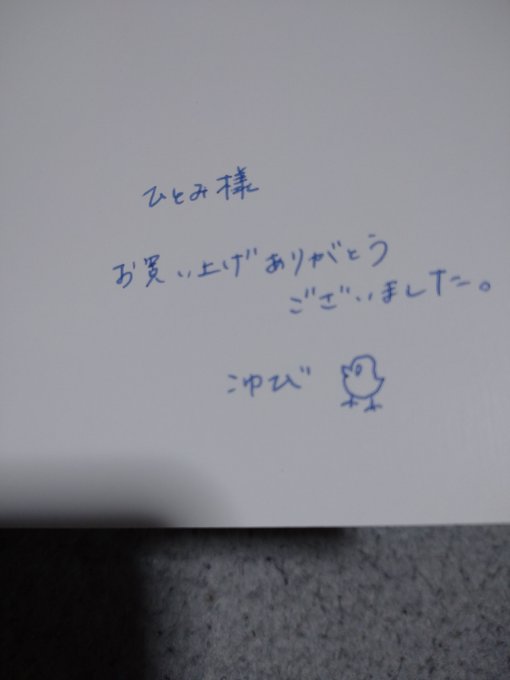 ひとみ様
お買い上げありがとう
ございました。
こゆび